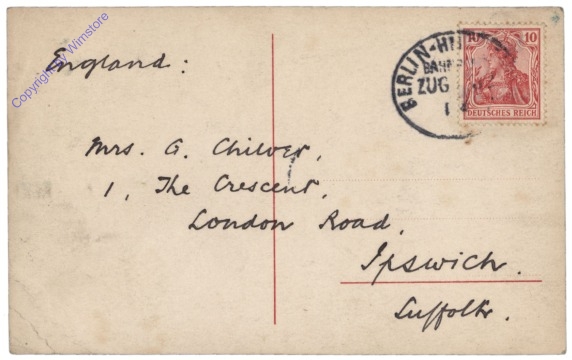 Copyright by Wimstore
England:
BERLIN-
ZUG
10
DEUTSCHES REICH
Mrs. G. Chilver,
1, The Crescent,
London Road,
Ipswich.
Suffolk.